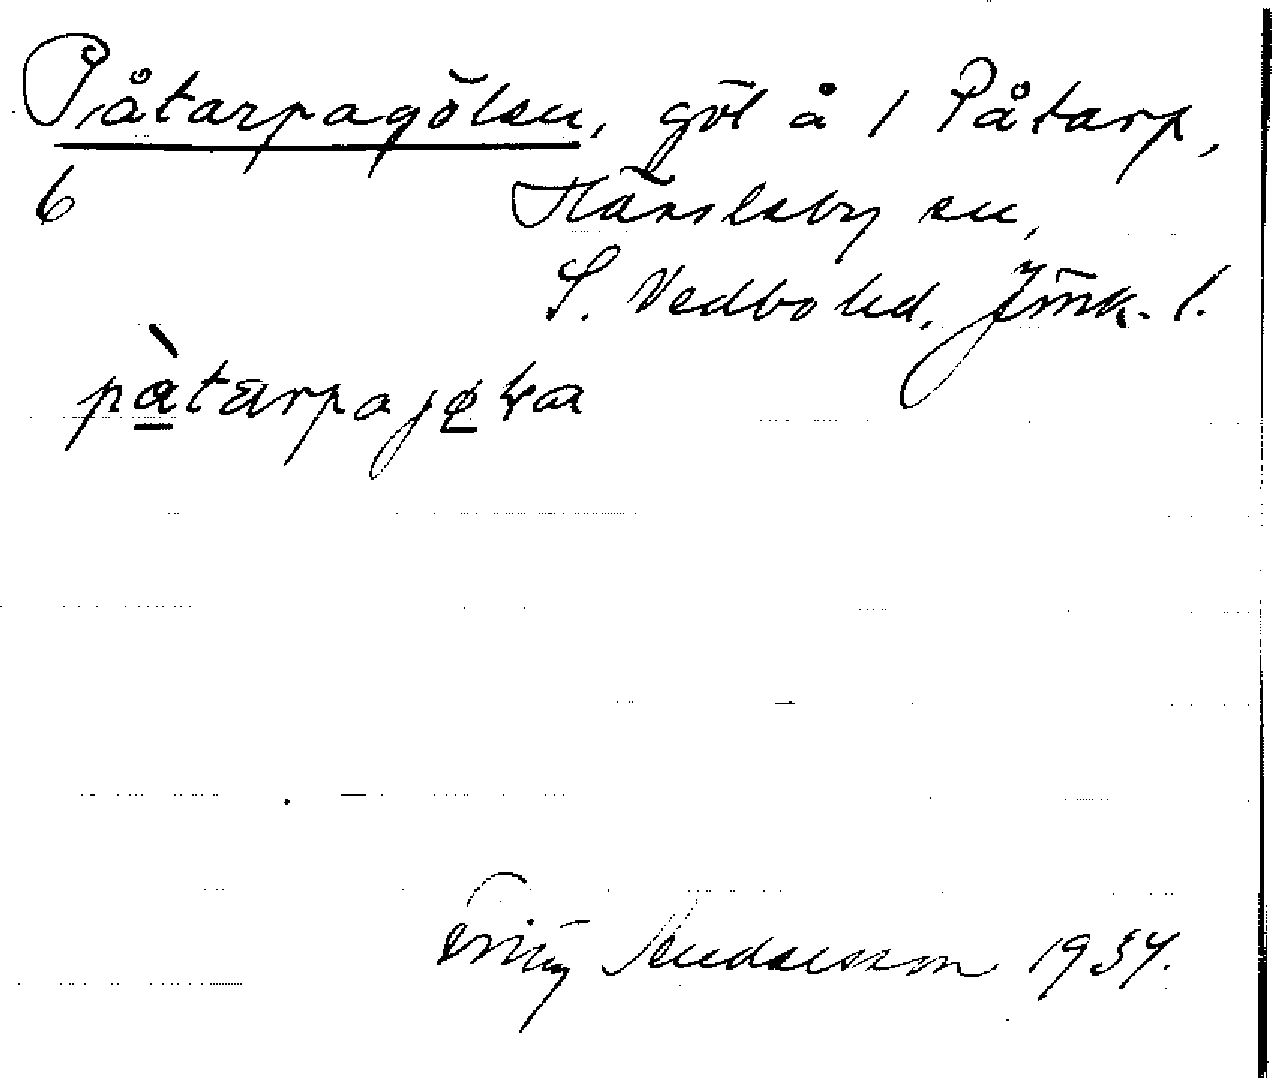 Påtarpagölen, göl å 1 Påtarp,
6 Hässleby sn,
S. Vedbo hd. Jönk. l.
pàtarpajøɫa
Andersson 1934.